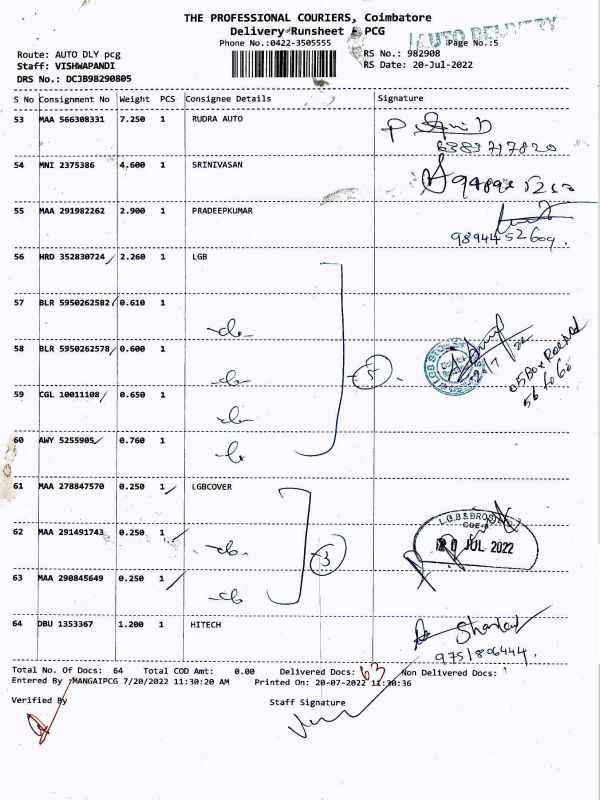 THE PROFESSIONAL COURIERS, Coimbatore
Delivery Runsheet PCG
AUTO DELIVERY
Phone No.:0422-3505555
Page No.:5
Route: AUTO DLY pcg
RS No.: 982908
Staff: VISHWAPANDI
RS Date: 20-Jul-2022
DRS No.: DCJB98290805
S No Consignment No Weight PCS Consignee Details Signature
53 MAA 566308331 7.250 1 RUDRA AUTO
6383717820
54 MNI 2375386 4.600 1 SRINIVASAN
55 MAA 291982262 2.900 1 PRADEEPKUMAR
9894452609.
56 HRD 352830724 2.260 1 LGB
57 BLR 5950262582 0.610 1
-do-
58 BLR 5950262578 0.600 1
-do-
5
05 Box
56 to 60
59 CGL 10011108 0.650 1
-do-
60 AWY 5255905 0.760 1
61 MAA 278847570 0.250 1 LGBCOVER
62 MAA 291491743 0.250 1
-do-
3
L.G.B & BROS
20 JUL 2022
63 MAA 290845649 0.250 1
-do-
64 DBU 1353367 1.200 1 HITECH
9751806444.
Total No. Of Docs: 64 Total COD Amt: 0.00 Delivered Docs: 63 Non Delivered Docs: 1
Entered By :MANGAIPCG 7/20/2022 11:30:20 AM Printed On: 20-07-2022 11:30:36
Verified By Staff Signature